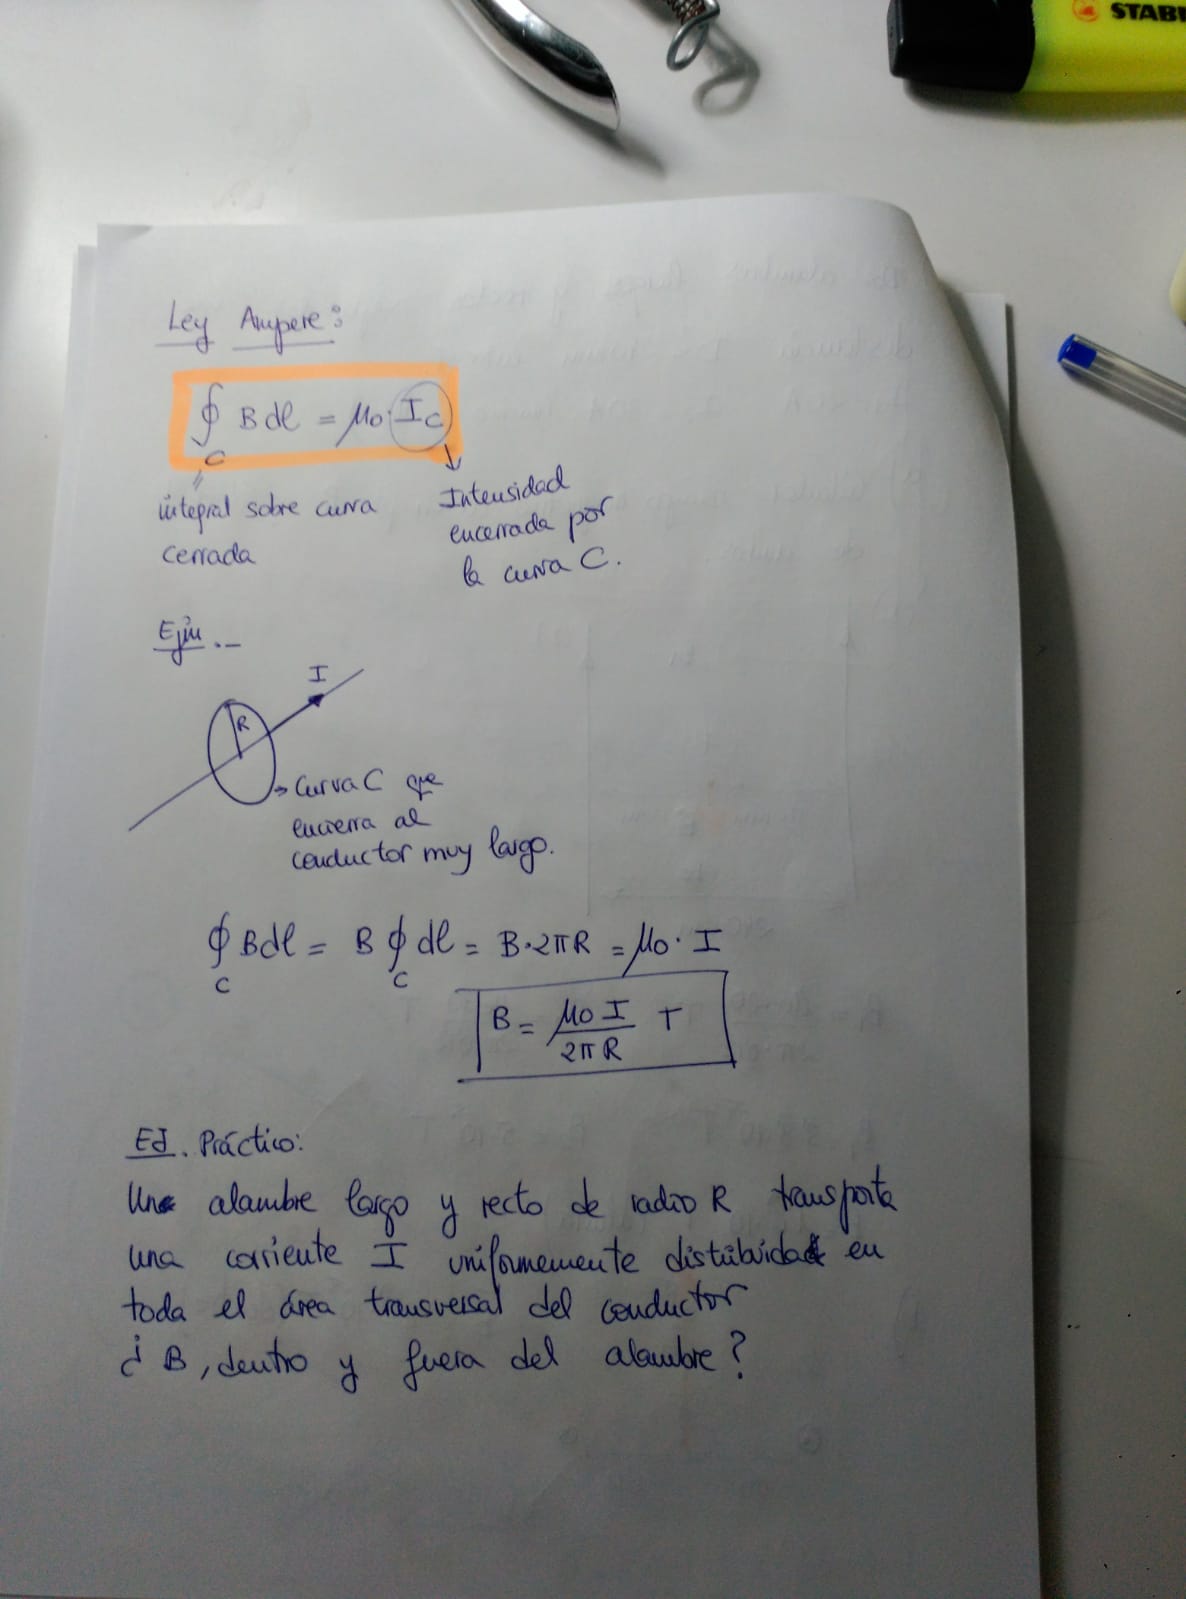 STABI
Ley Ampere:
∮ B dl = μo · Ic
C
integral sobre curva
cerrada
Intensidad
encerrada por
la curva C.
Ejm.-
I
R
→ Curva C que
encierra al
conductor muy largo.
∮ Bdl = B ∮ dl = B·2πR = μo · I
C C
B = μo I / 2πR T
EJ. Práctico:
Un alambre largo y recto de radio R transporta
una corriente I uniformemente distribuida en
toda el área transversal del conductor
¿B, dentro y fuera del alambre?